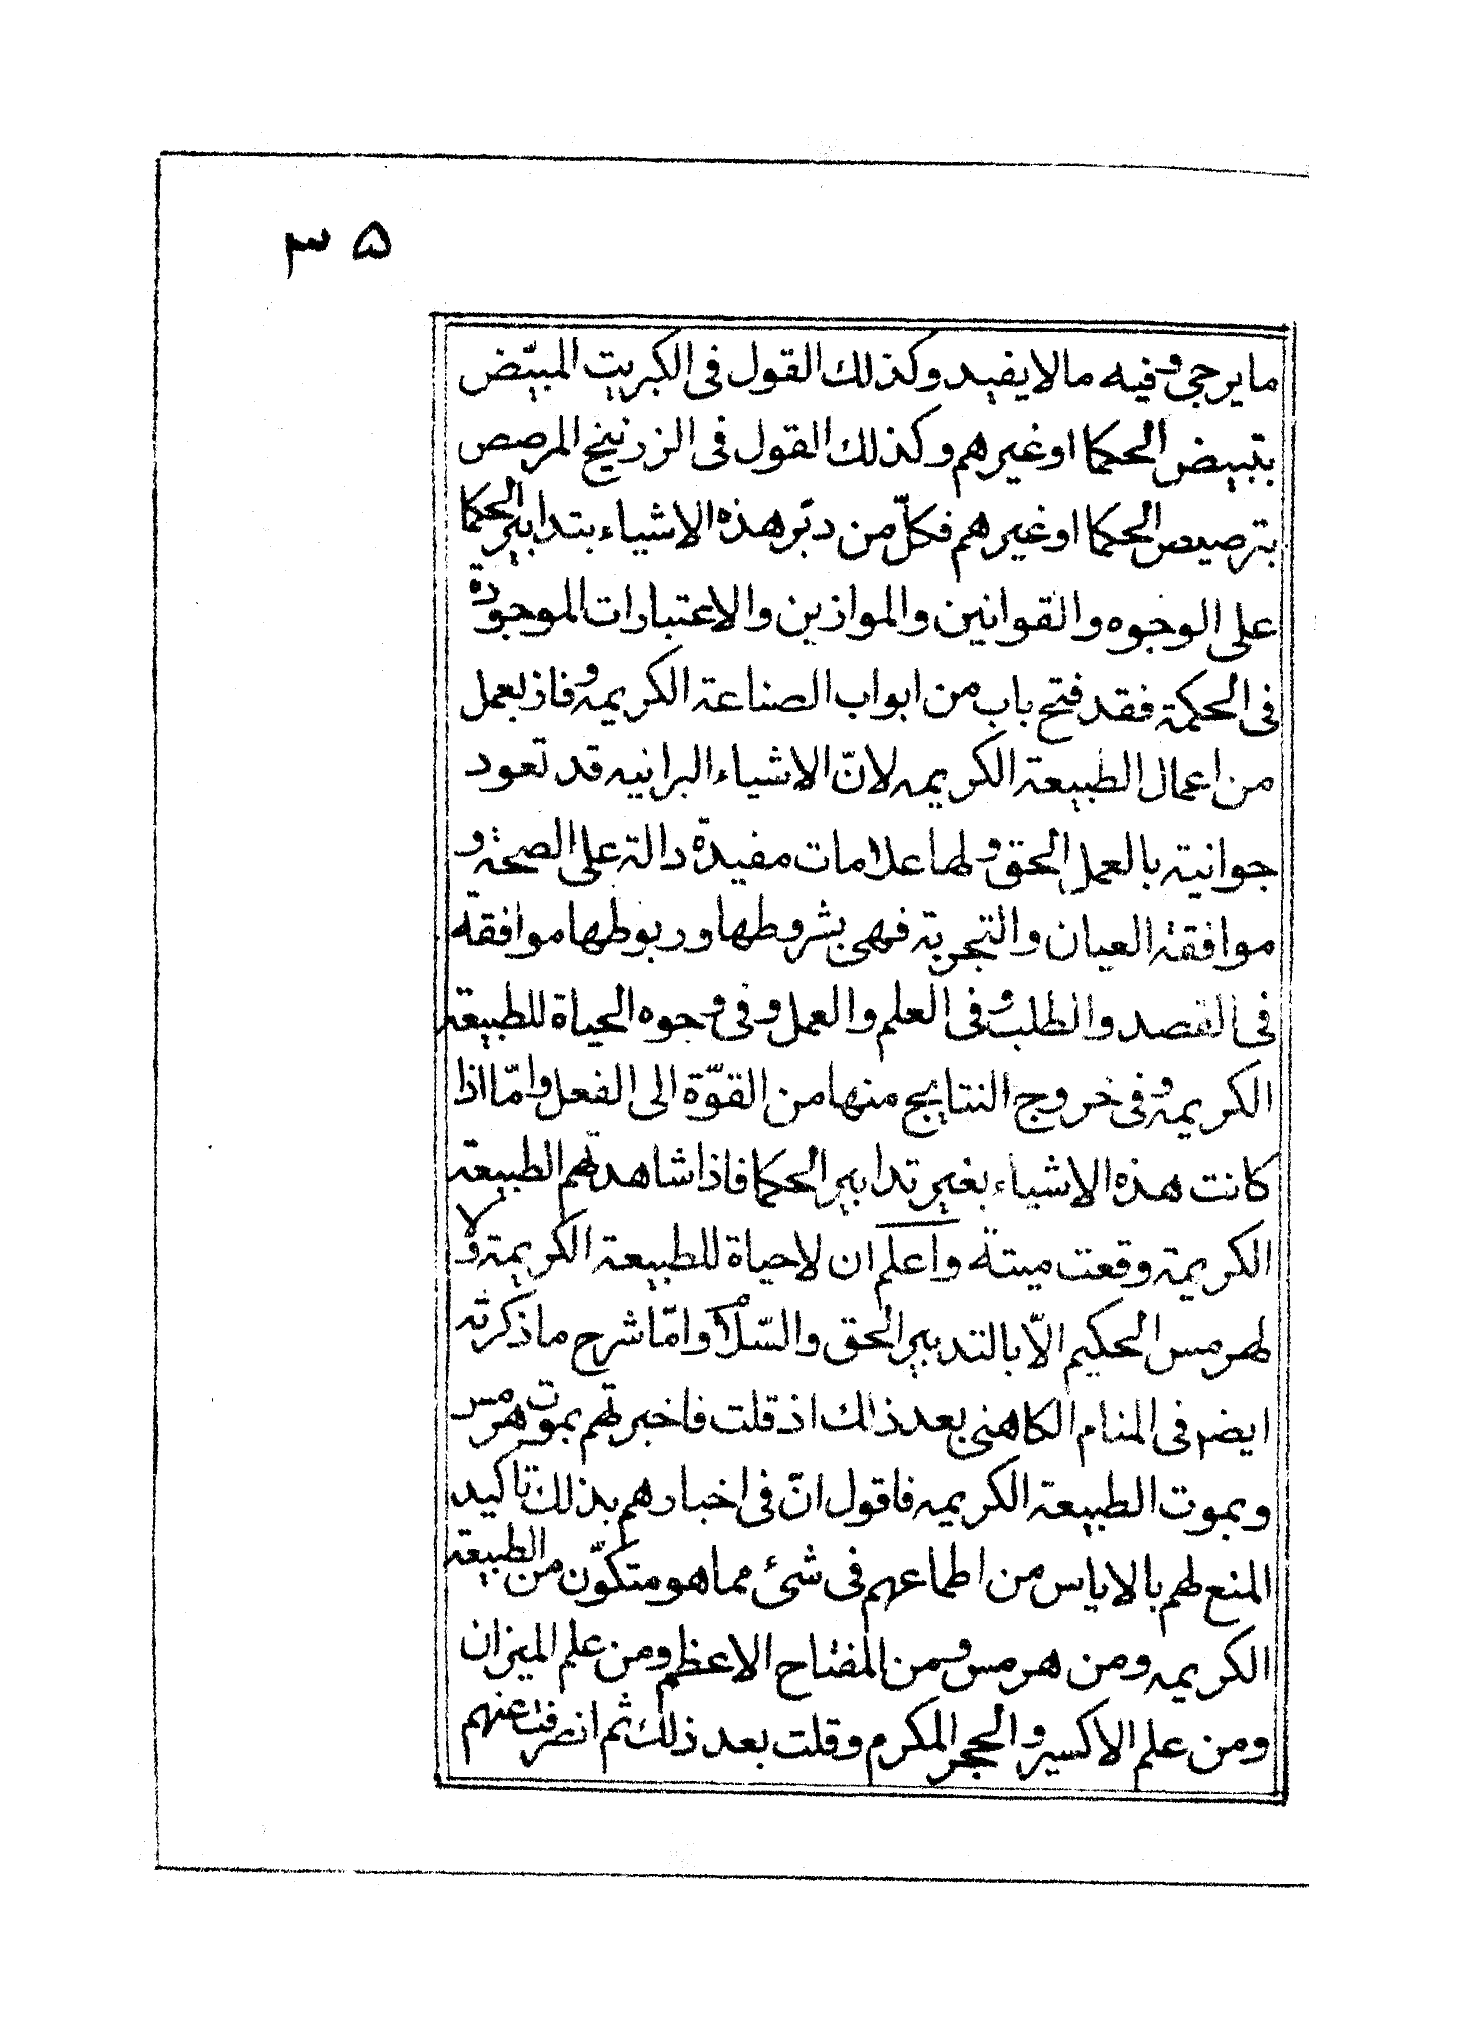 ۳۵
ما يرجى وفيه ما لا يفيد وكذلك القول فى الكبريت المبيّض
بتبييض الحكما او غيرهم وكذلك القول فى الزرنيخ المرصص
بترصيص الحكما او غيرهم فكلّ من دبّر هذه الاشياء بتدابير الحكما
على الوجوه والقوانين والموازين والاعتبارات الموجودة
فى الحكمة فقد فتح باب من ابواب الصناعة الكريمه وفاز بعمل
من اعمال الطبيعة الكريمه لانّ الاشياء البرانيه قد تعود
جوانية بالعمل الحق ولها علامات مفيدة دالة على الصحة و
موافقة العيان والتجربة فهى بشروطها وربوطها موافقة
فى القصد والطلب وفى العلم والعمل وفى وجوه الحياة للطبيعة
الكريمه وفى خروج النتايج منها من القوّة الى الفعل وامّا اذا
كانت هذه الاشياء بغير تدابير الحكما فاذا شاهدتهم الطبيعة
الكريمة وقعت ميتة واعلم ان لا حياة للطبيعة الكريمة ولا
لهرمس الحكيم الّا بالتدبير الحق والسّلام وامّا شرح ما ذكرته
ايضم فى المنام الكاهنى بعد ذلك اذ قلت فاخبرتهم بموت هرمس
وبموت الطبيعة الكريمه فاقول انّ فى اخبارهم بذلك تاكيد
المنع لهم بالاياس من اطماعهم فى شئ مما هو متكوّن من الطبيعة
الكريمه ومن هرمس ومن المفتاح الاعظم ومن علم الميزان
ومن علم الاكسير والحجر المكرم وقلت بعد ذلك ثم انصرفت عنهم